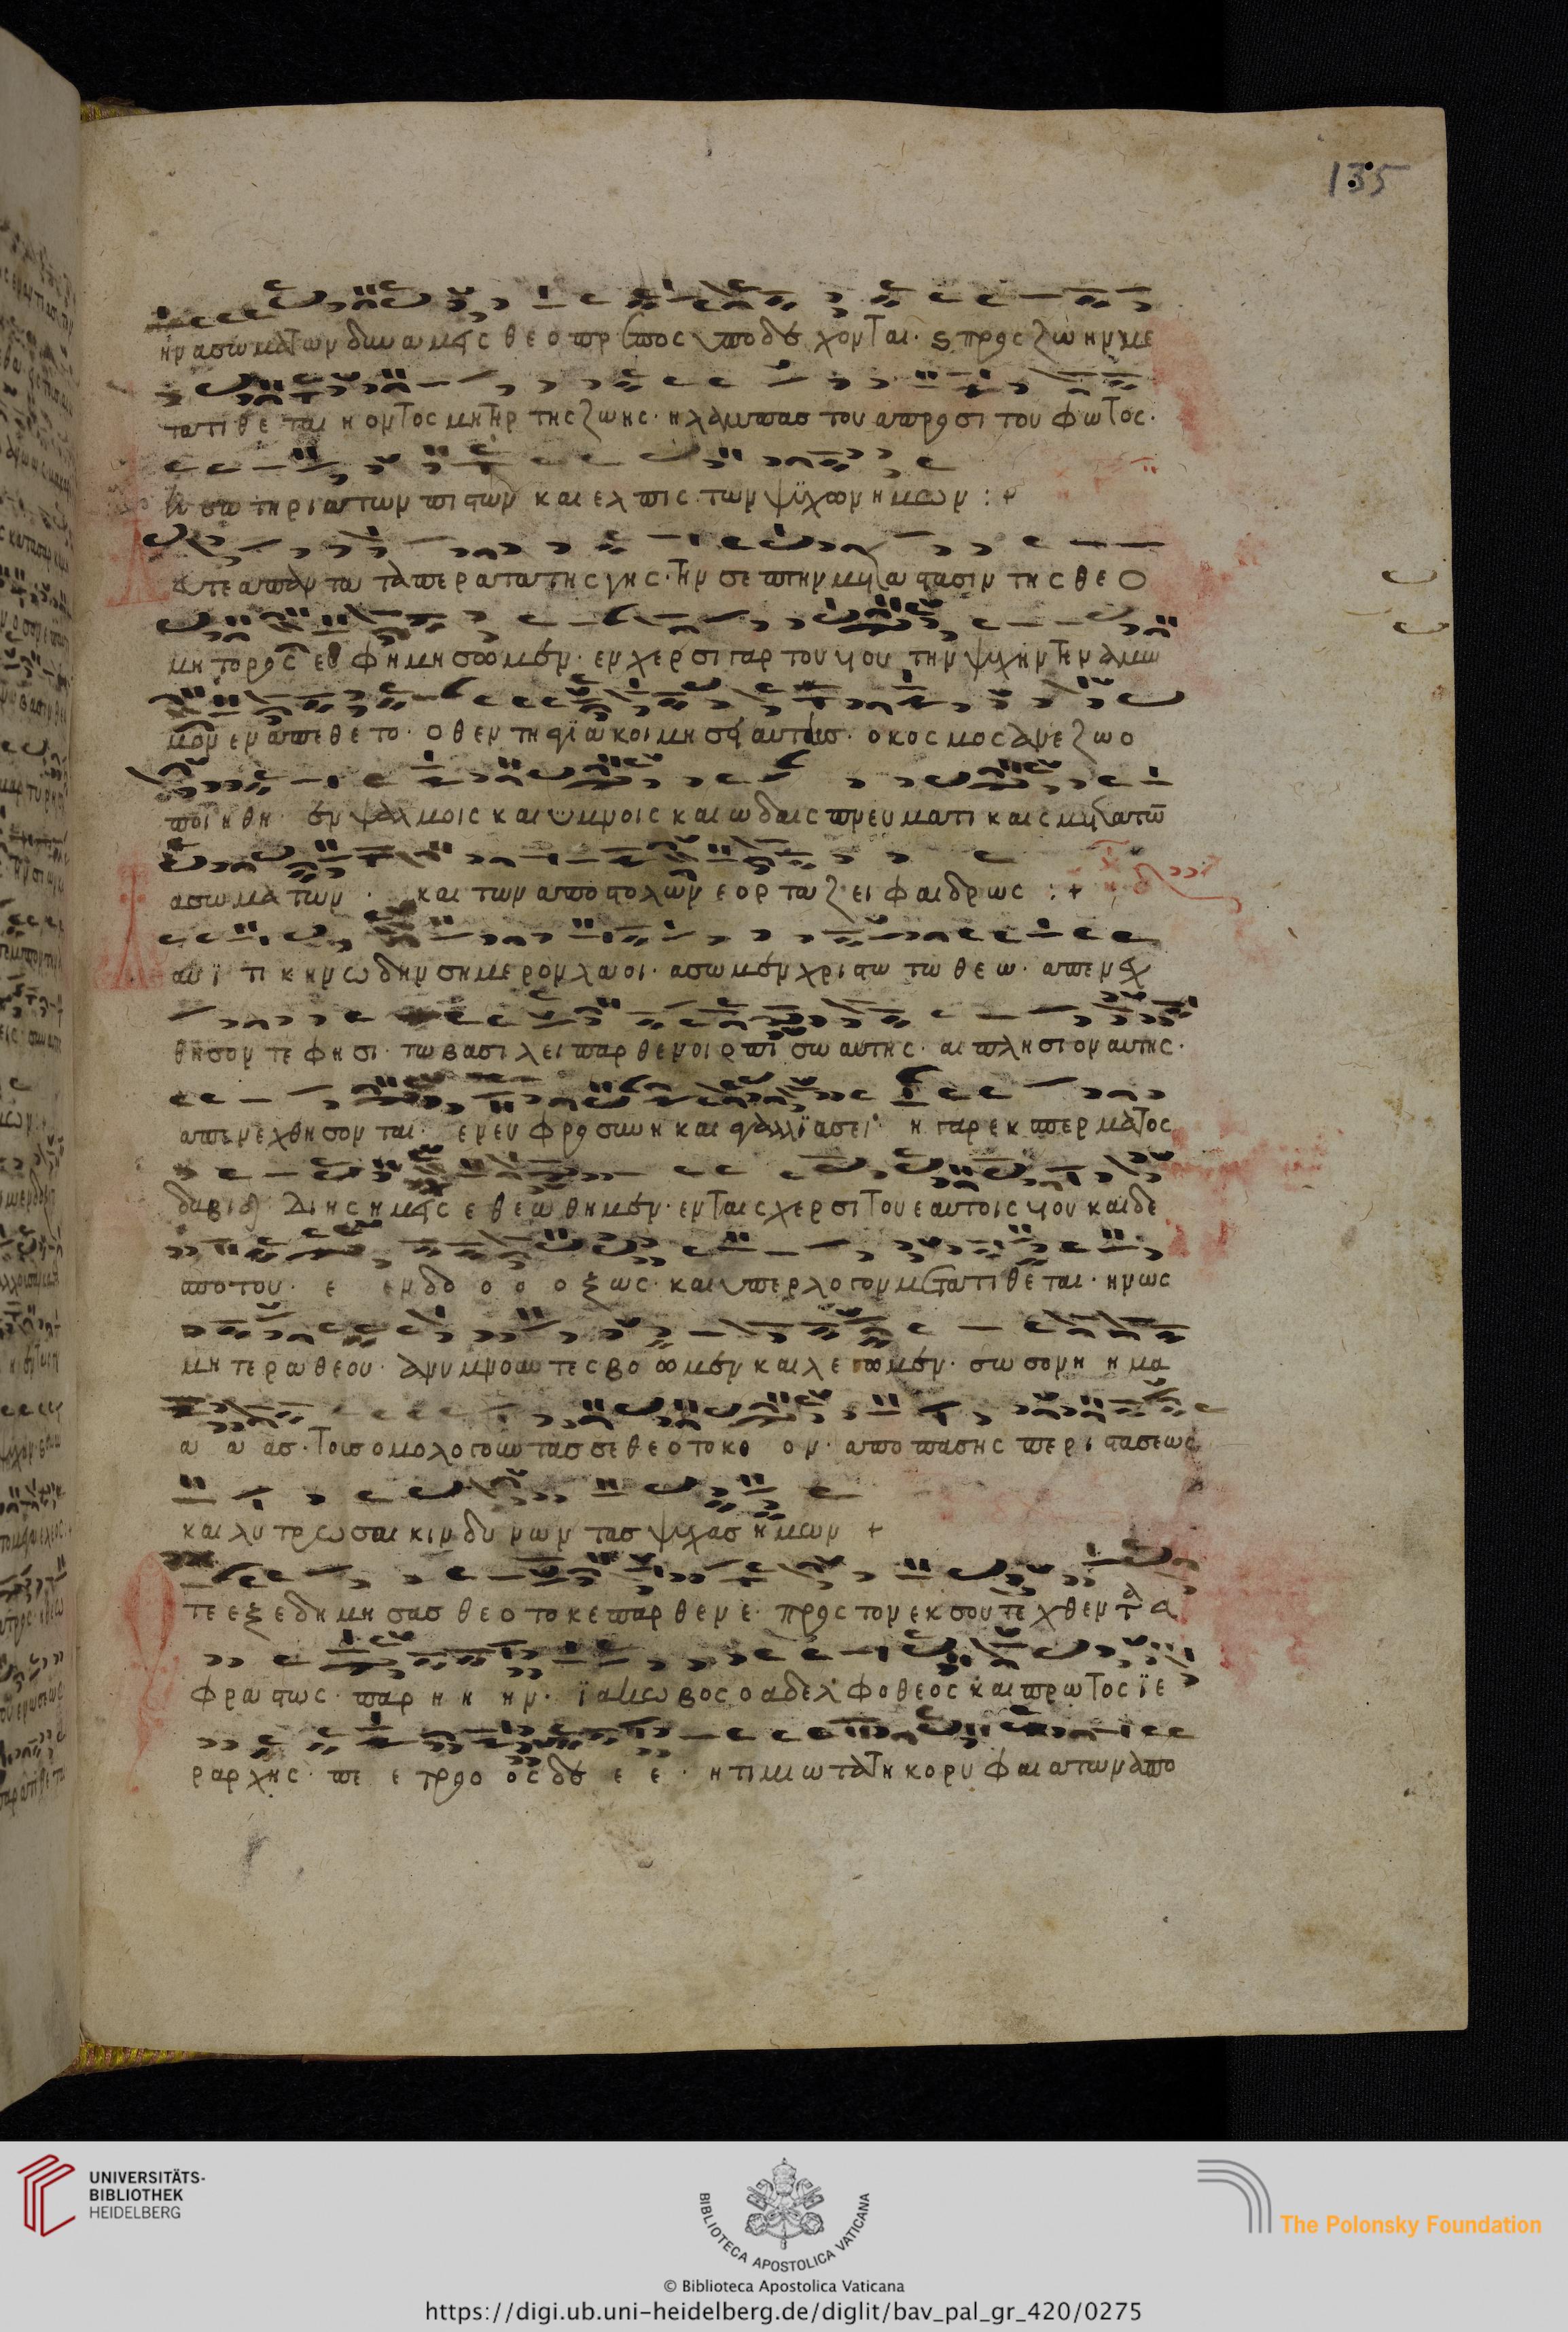 135
ην ασωματων δυναμεις θεοπρεπως υποδεχονται · ϗ προς ζωην με
τατιθεται η οντος μητηρ της ζωης · η λαμπας του απροσιτου φωτος ·
η σωτηρια των πιστων και ελπις των ψυχων ημων : +
ευτε απαντα τα περατα της γης · την σεπτην μεταστασιν της θεο
μητορος ευφημησωμεν · εν χερσι γαρ του υιου την ψυχην την αμω
μον εναπεθετο · οθεν τη αγια κοιμησει αυτης · ο κοσμος ανεζωο
ποιηθη · εν ψαλμοις και υμνοις και ωδαις πνευματικαις μετα των
ασωματων · και των αποστολων εορταζει φαιδρως : +
αυιτικην ωδην σημερον λαοι · ασωμεν χριστω τω θεω · απενεχ
θησονται φησι · τω βασιλει παρθενοι οπισω αυτης · αι πλησιον αυτης ·
απενεχθησονται · εν ευφροσυνη και αγαλλιασει · η γαρ εκ σπερματος
δαβιδ δι ης ημεις εθεωθημεν · εν ταις χερσι του εαυτοις υιου και δε
σποτου · ε ενδο ο ο οξως · και υπερ λογον μετατιθεται · ην ως
μητερα θεου · ανυμνουντες βοωμεν και λεγωμεν · σωσον η ημα
α α ας · τους ομολογουντας σε θεοτοκο ον · απο πασης περιστασεως
και λυτρωσαι κινδυνων τας ψυχας ημων +
τε εξεδημησας θεοτοκε παρθενε · προς τον εκ σου τεχθεντα α
φραστως · παρ η η ην · ϊακωβος ο αδελφοθεος και πρωτος ϊε
ραρχης · πε ε τρο ο ος δε ε ε · η τιμιωτατη κορυφαια των απο
UNIVERSITÄTS-
BIBLIOTHEK
HEIDELBERG
BIBLIOTECA APOSTOLICA VATICANA
The Polonsky Foundation
© Biblioteca Apostolica Vaticana
https://digi.ub.uni-heidelberg.de/diglit/bav_pal_gr_420/0275